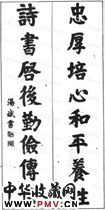 忠厚培心和平養生
詩書啓後勤儉傳
中华收藏网
www.PMV.CN